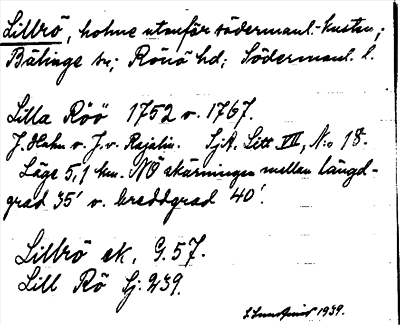 Lillrö, holme utanför södermanl.-kusten;
Bälinge sn; Rönö hd; Södermanl. l.
Lilla Röö 1752 o. 1767.
J. Hahn o. J. v. Rajalin. SjA. Litt VII, N:o 18.
Läge 5,1 km. NÖ skärningen mellan längd-
grad 35' o. breddgrad 40'.
Lillrö ek. G. 57.
Lill Rö Sj. 239.
1939.